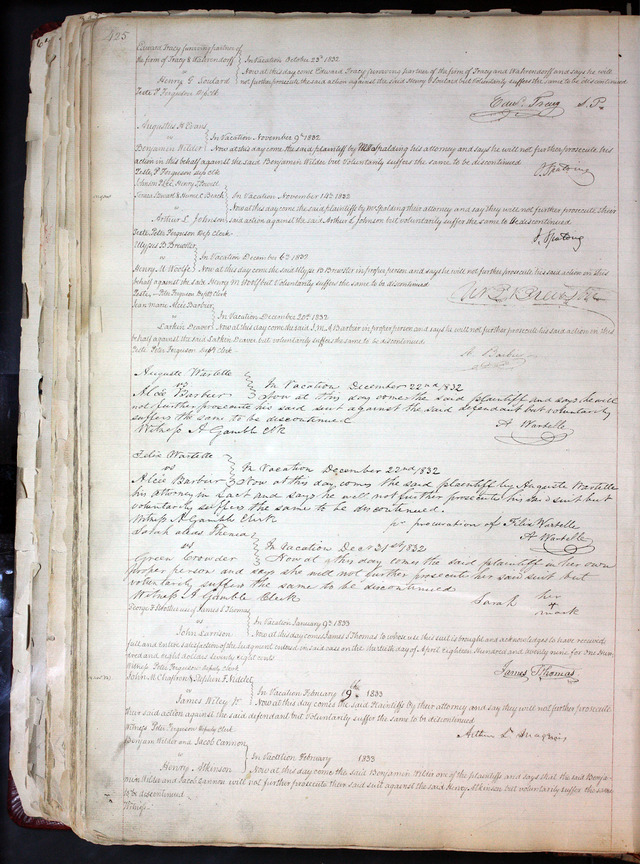 425
Edward Tracy surviving partner of
the firm of Tracy & Wahrendorff
In Vacation October 23d 1832
vs
Now at this day come Edward Tracy surviving partner of the firm of Tracy and Wahrendorff and says he will
Henry G Soulard
not further prosecute the said action against the said Henry G Soulard but voluntarily suffers the same to be discontinued
Teste P Ferguson Dep Clk
Edwd. Tracy S. P.
Augustus H Evans
In Vacation November 9th 1832
vs
Benjamin Wilder
Now at this day come the said plaintiff by Spalding his attorney and says he will not further prosecute his
action in this behalf against the said Benjamin Wilder but voluntarily suffers the same to be discontinued
Teste P Ferguson Dep Clk
J. Spalding
Henry
In Vacation November 14th 1832
Now at this day come the said plaintiffs by Mr Spalding their attorney and say they will not further prosecute their
Arthur L Johnson
said action against the said Arthur L Johnson but voluntarily suffers the same to be discontinued
Teste Peter Ferguson Dep Clerk
J. Spalding
Ulysses B Brewster
In Vacation December 6th 1832
vs
Henry M Woolfe
Now at this day come the said Ulysses B Brewster in proper person and says he will not further prosecute his said action in this
behalf against the said Henry M Woolf but voluntarily suffers the same to be discontinued
Teste Peter Ferguson Dept Clerk
Jean Marie Alcie Barbier
In Vacation December 20th 1832
vs
Larkin Deaver
Now at this day come the said J.M.A Barbier in proper person and says he will not further prosecute his said action in this
behalf against the said Larkin Deaver but voluntarily suffers the same to be discontinued
Teste Peter Ferguson Dept Clerk
A Barbier
Auguste Wartelle
vs
In Vacation December 22nd 1832
Alcée Barber
Now at this day comes the said plaintiff and says he will
not further prosecute his said suit against the said defendant but voluntarily
suffers the same to be discontinued
A Wartelle
Witness A Gamble Clk
Felix Wartelle
vs
In Vacation December 22nd 1832
Alcée Barber
Now at this day comes the said plaintiff by Auguste Wartelle
his attorney in fact and says he will not further prosecute his said suit but
voluntarily suffers the same to be discontinued.
Witness A Gamble Clerk
pr procuration of Felix Wartelle
A Wartelle
Sarah alias
vs
In Vacation Decr 31st 1832
Green Crowder
Now at this day comes the said plaintiff in her own
proper person and says she will not further prosecute her said suit but
voluntarily suffers the same to be discontinued
Witness A Gamble Clerk
Sarah her
+
mark
use of James S Thomas
vs
In Vacation January 9th 1833
John Larrison
Now at this day comes James S Thomas to whose use this suit is brought and acknowledges to have received
full and entire satisfaction of the Judgment entered in said case on the thirtieth day of April Eighteen Hundred and twenty nine for One hun-
dred and eight dollars seventy eight cents
Witness Peter Ferguson Deputy Clerk
James S Thomas
John A Chaffron & Stephen F Nidelet
In Vacation February 19th 1833
vs
James Wiley Jr
Now at this day comes the said Plaintiffs by their attorney and say they will not further prosecute
their said action against the said defendant but voluntarily suffer the same to be discontinued
Witness Peter Ferguson Deputy Clerk
Arthur L Magenis
Benjamin Wilder and Jacob Cannon
vs
In Vacation February 1833
Henry Atkinson
Now at this day come the said Benjamin Wilder one of the plaintiffs and says that the said Benja-
min Wilder and Jacob Cannon will not further prosecute their said suit against the said Henry Atkinson but voluntarily suffer the same
to be discontinued
Witness